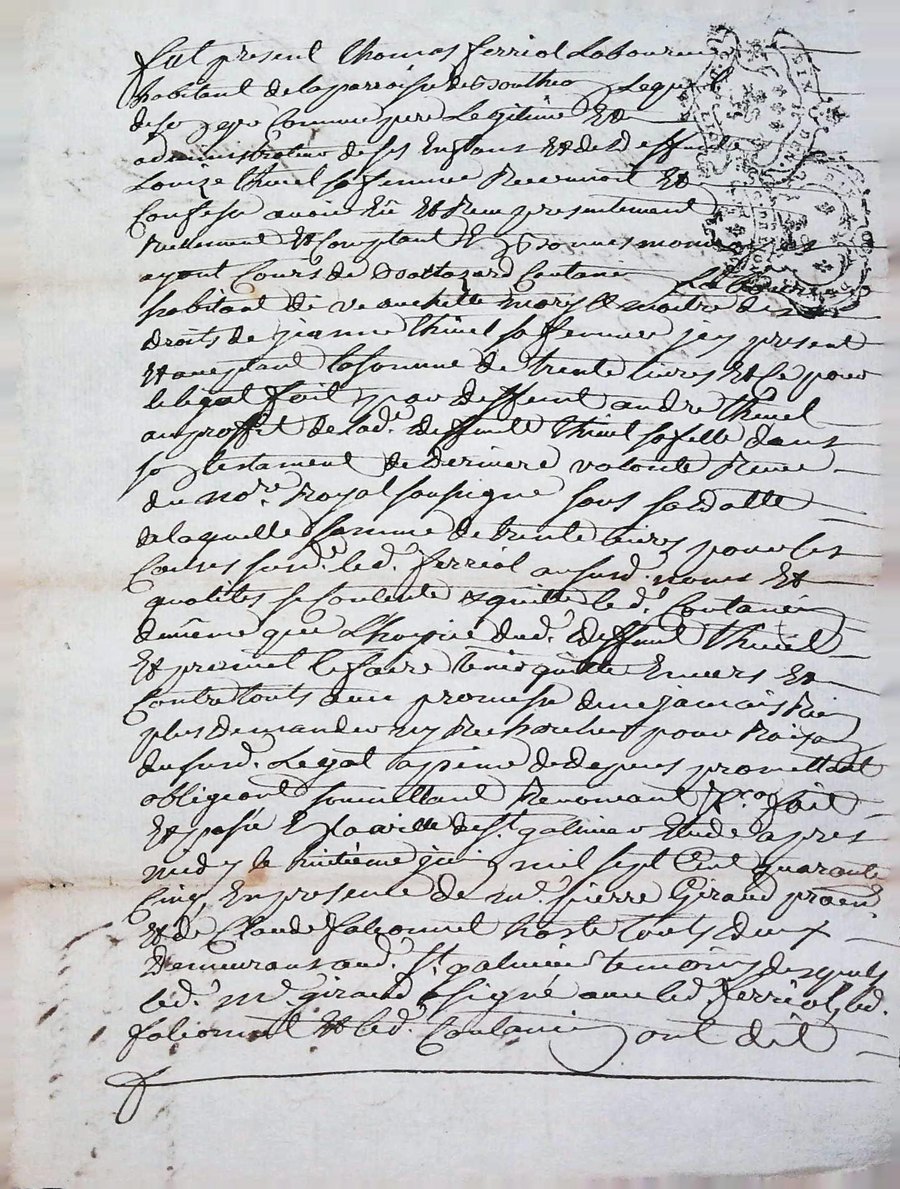 fut present thomas ferriol Laboureur
habitant de la parroisse de Lequel
de so gre Comme pere Legitime Et
administrateur de ses Enfans Et de Deffunte
Louize thivel sa femme Reconnoit Et
Confesse avoir Eü Et Receu presentement
Reellement Et Comptant En bonnes monoies
ayant Cours de Baltazard Coutanci Laboureur
habitant de veauchette mary Et maitre des
droits de jeanne thivel sa femme jcy present
Et aceptant la somme de trente livres Et Ce pour
le legat fait par deffunt andré thivel
au proffit de lade deffunte thivel sa fille dans
so testament de derniere volonté Receu
du nore Royal soussigné sous sa datte
de laquelle somme de trente livres pour les
Causes susd. led. ferriol au susd. noms Et
qualites se Contente Et quitte led. Coutanci
de même que L'hoirie dud. deffunt thivel
Et promet le faire tenir quitte Envers Et
Contre touts avec promesse de ne jamais Rien
plus demander ny Rechercher pour Raison
du susd. Legat a peine de depens promettant
obligeant soumettant Renonceant fait
Et passé En la ville de st galmier Etude apres
midy le huitième juin mil sept Cent quarante
Cinq En presence de me. pierre Giraud
Et de Claude falconnet hoste touts deux
Demeurans aud. st. galmier temoins desquels
led. me. giraud a signé avec led. ferriol led.
falconnet Et led. Coutanci ont dit